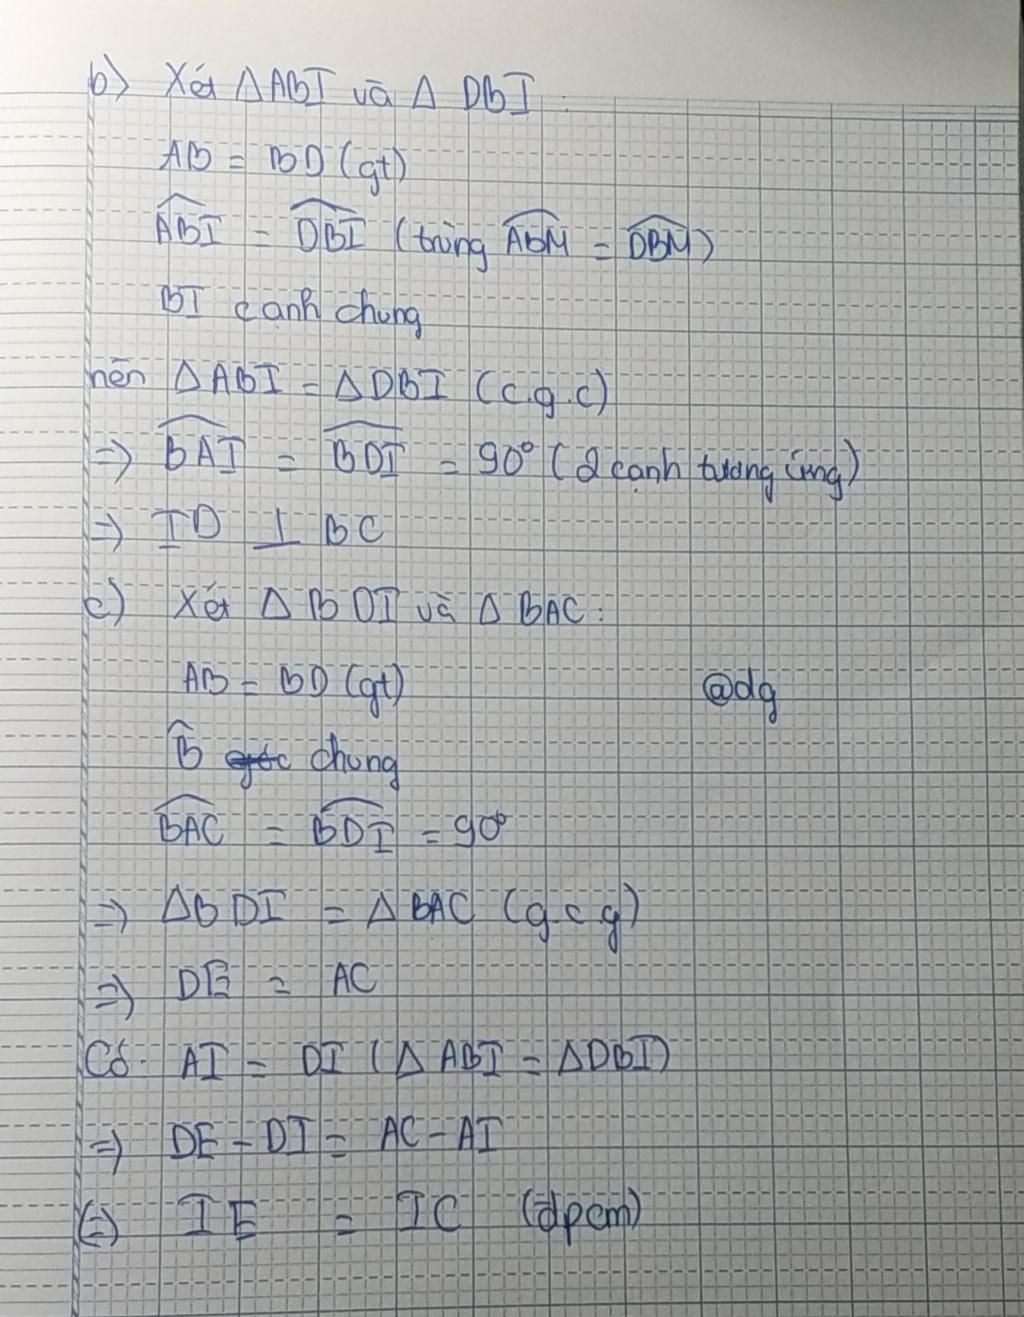 b) Xét Δ ABI và Δ DBI :
AB = BD (gt)
ABI = DBI (trùng ABM = DBM)
BI cạnh chung
nên Δ ABI = Δ DBI (c.g.c)
=> BAI = BDI = 90° (2 cạnh tương ứng)
=> ID ⊥ BC
c) Xét Δ BDI và Δ BAC :
AB = BD (gt)
@dg
B̂ góc chung
BAC = BDI = 90°
=> Δ BDI = Δ BAC (g.c.g)
=> DE = AC
Có. AI = DI (Δ ABI = Δ DBI)
=> DE - DI = AC - AI
(=) IE = IC (đpcm)